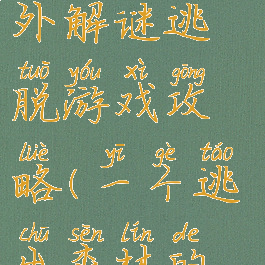 外解谜逃
tuō yóu xì gōng
脱游戏攻
lüè yī gè táo
略(一个逃
chū sēn lín de